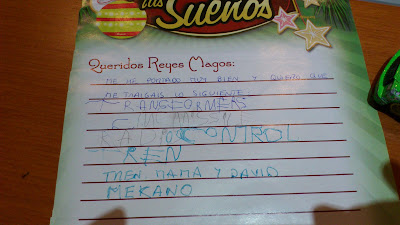 tus
Sueños
Queridos Reyes Magos:
ME HE PORTADO MUY BIEN Y QUIERO QUE
ME TRAIGAIS LO SIGUIENTE
TRANSFORMERS
RADIO CONTROL
TREN
TREN MAMA Y DAVID
MEKANO